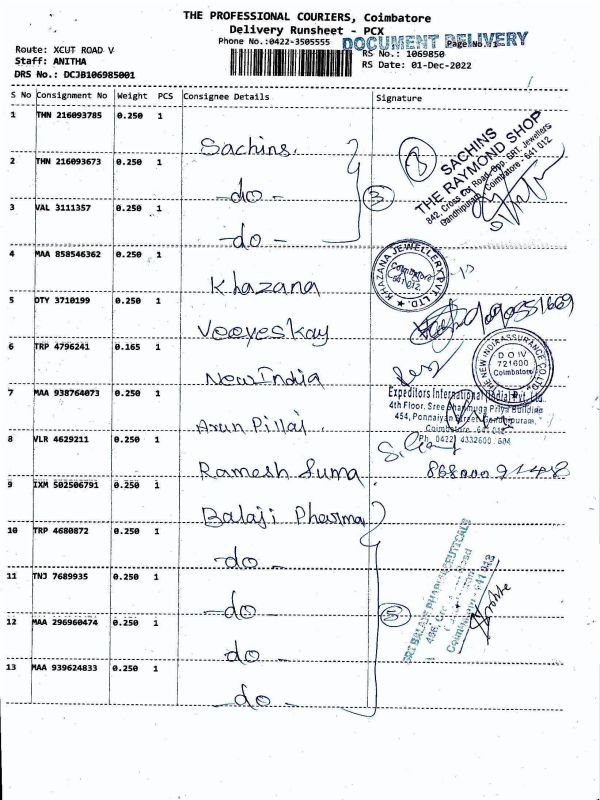 THE PROFESSIONAL COURIERS, Coimbatore
Delivery Runsheet - PCX
Phone No.:0422-3505555
DOCUMENT DELIVERY
Page No.:1
Route: XCUT ROAD V
RS No.: 1069850
Staff: ANITHA
RS Date: 01-Dec-2022
DRS No.: DCJB106985001
S No Consignment No Weight PCS Consignee Details Signature
1 THN 216093785 0.250 1 Sachins.
2 THN 216093673 0.250 1 -do-
3 VAL 3111357 0.250 1 -do-
3
SACHINS
THE RAYMOND SHOP
842, Cross Cut Road, Opp. GRT. Jewellers
Gandhipuram, Coimbatore - 641 012.
4 MAA 858546362 0.250 1 Khazana
KHAZANA JEWELLERY PVT. LTD.
Coimbatore
641 012.
5 DTY 3710199 0.250 1 Veeyeskay
6 TRP 4796241 0.165 1 New India
THE NEW INDIA ASSURANCE CO. LTD.
D O IV
721600
Coimbatore
7 MAA 938764073 0.250 1 Arun Pillai.
Expeditors International (India) Pvt. Ltd.
4th Floor, Sree Shanmuga Priya Building
454, Ponnaiyan Street, Gandhipuram,
Coimbatore - 641 012
Ph. 0422) 4332600 - 604
8 VLR 4629211 0.250 1 Ramesh Suma
9 IXM 502506791 0.250 1 Balaji Pharma
10 TRP 4680872 0.250 1 -do-
11 TNJ 7689935 0.250 1 -do-
12 MAA 296960474 0.250 1 do -
13 MAA 939624833 0.250 1 -do-
5
SRI BALAJI PHARMACEUTICALS
Coimbatore - 641 012